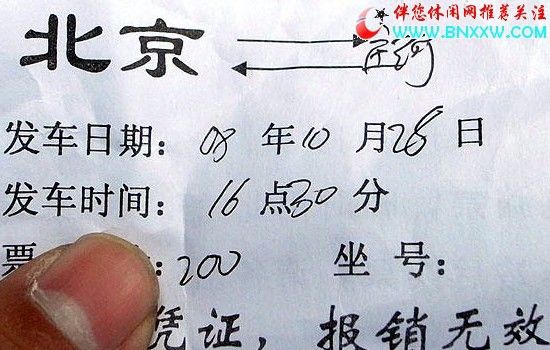 伴您休闲网推荐关注
WWW.BNXXW.COM
北京
发车日期：08年10月28日
发车时间：16点30分
票 ：200 坐号：
凭证，报销无效